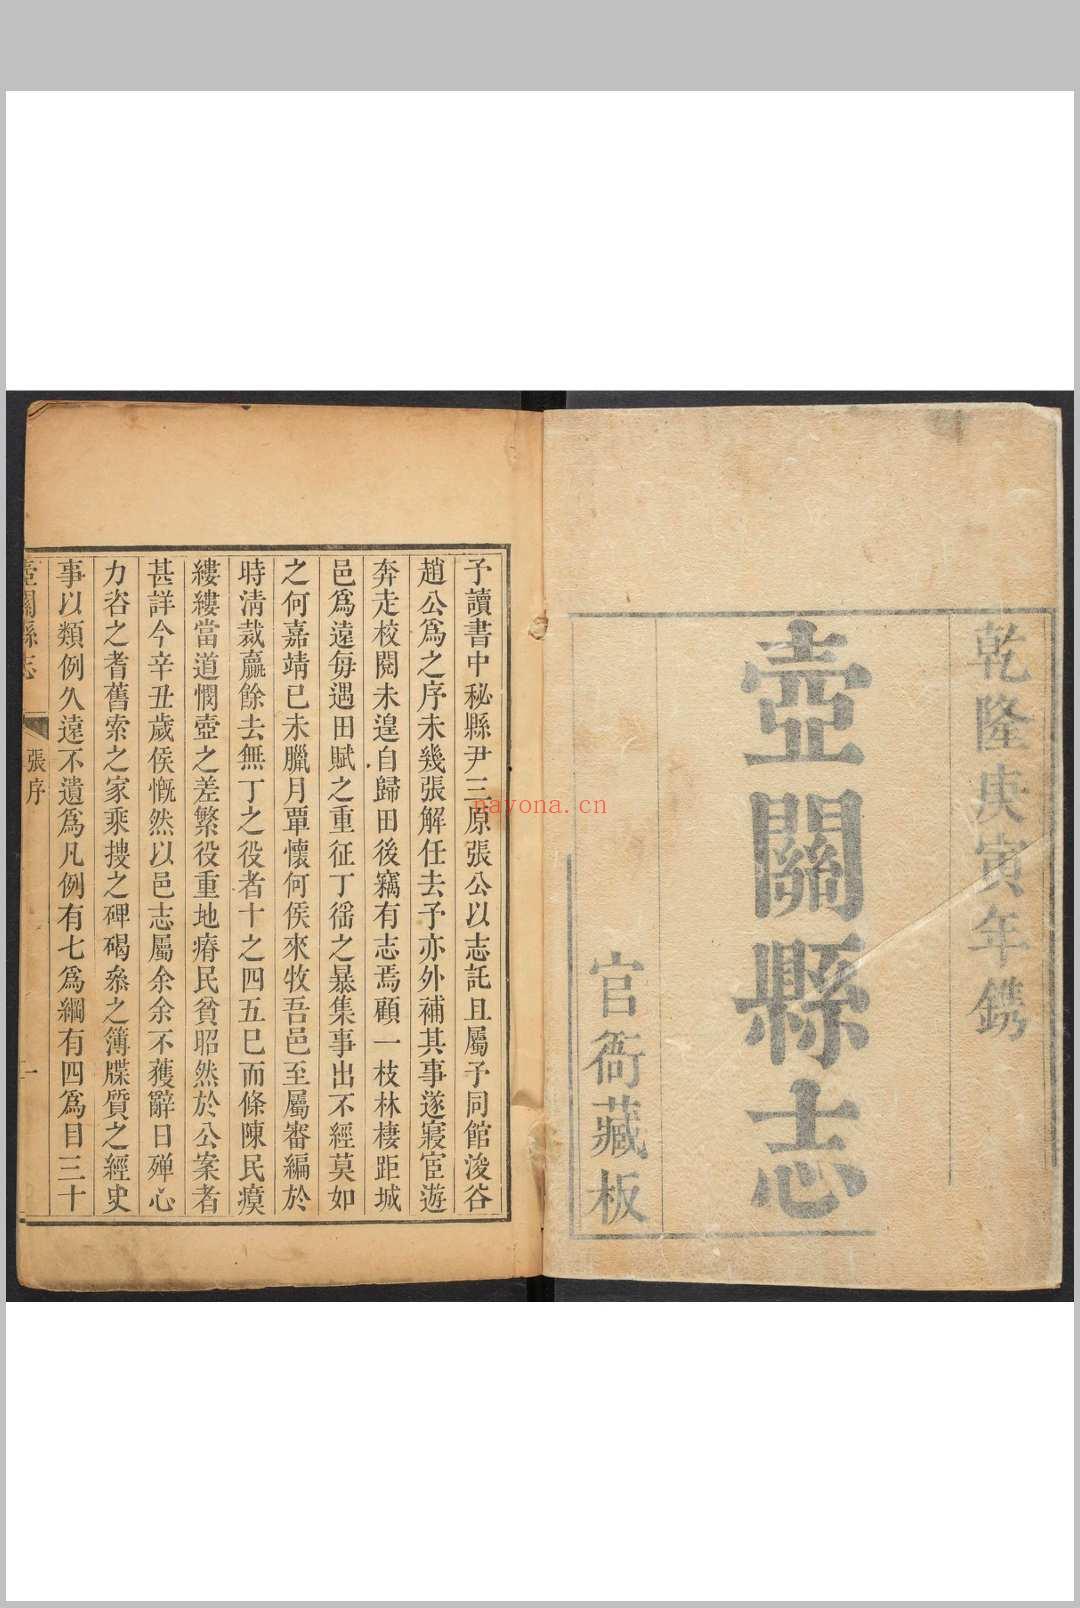 乾隆庚寅年鐫
壺關縣志
官衙藏板
予讀書中秘縣尹三原張公以志託且屬予同館浚谷
趙公爲之序未幾張解任去予亦外補其事遂寢宦遊
奔走校閱未遑自歸田後竊有志焉顧一枝林棲距城
邑爲遠每遇田賦之重征丁徭之暴集事出不經莫如
之何嘉靖已未臘月覃懷何侯來牧吾邑至屬審編於
時清裁羸餘去無丁之役者十之四五巳而條陳民瘼
縷縷當道憫壺之差繁役重地瘠民貧昭然於公案者
甚詳今辛丑歲侯慨然以邑志屬余余不獲辭日殫心
力咨之耆舊索之家乘搜之碑碣叅之簿牒質之經史
事以類例久遠不遺爲凡例有七爲綱有四爲目三十
壺關縣志
張序
一
nayona.cn